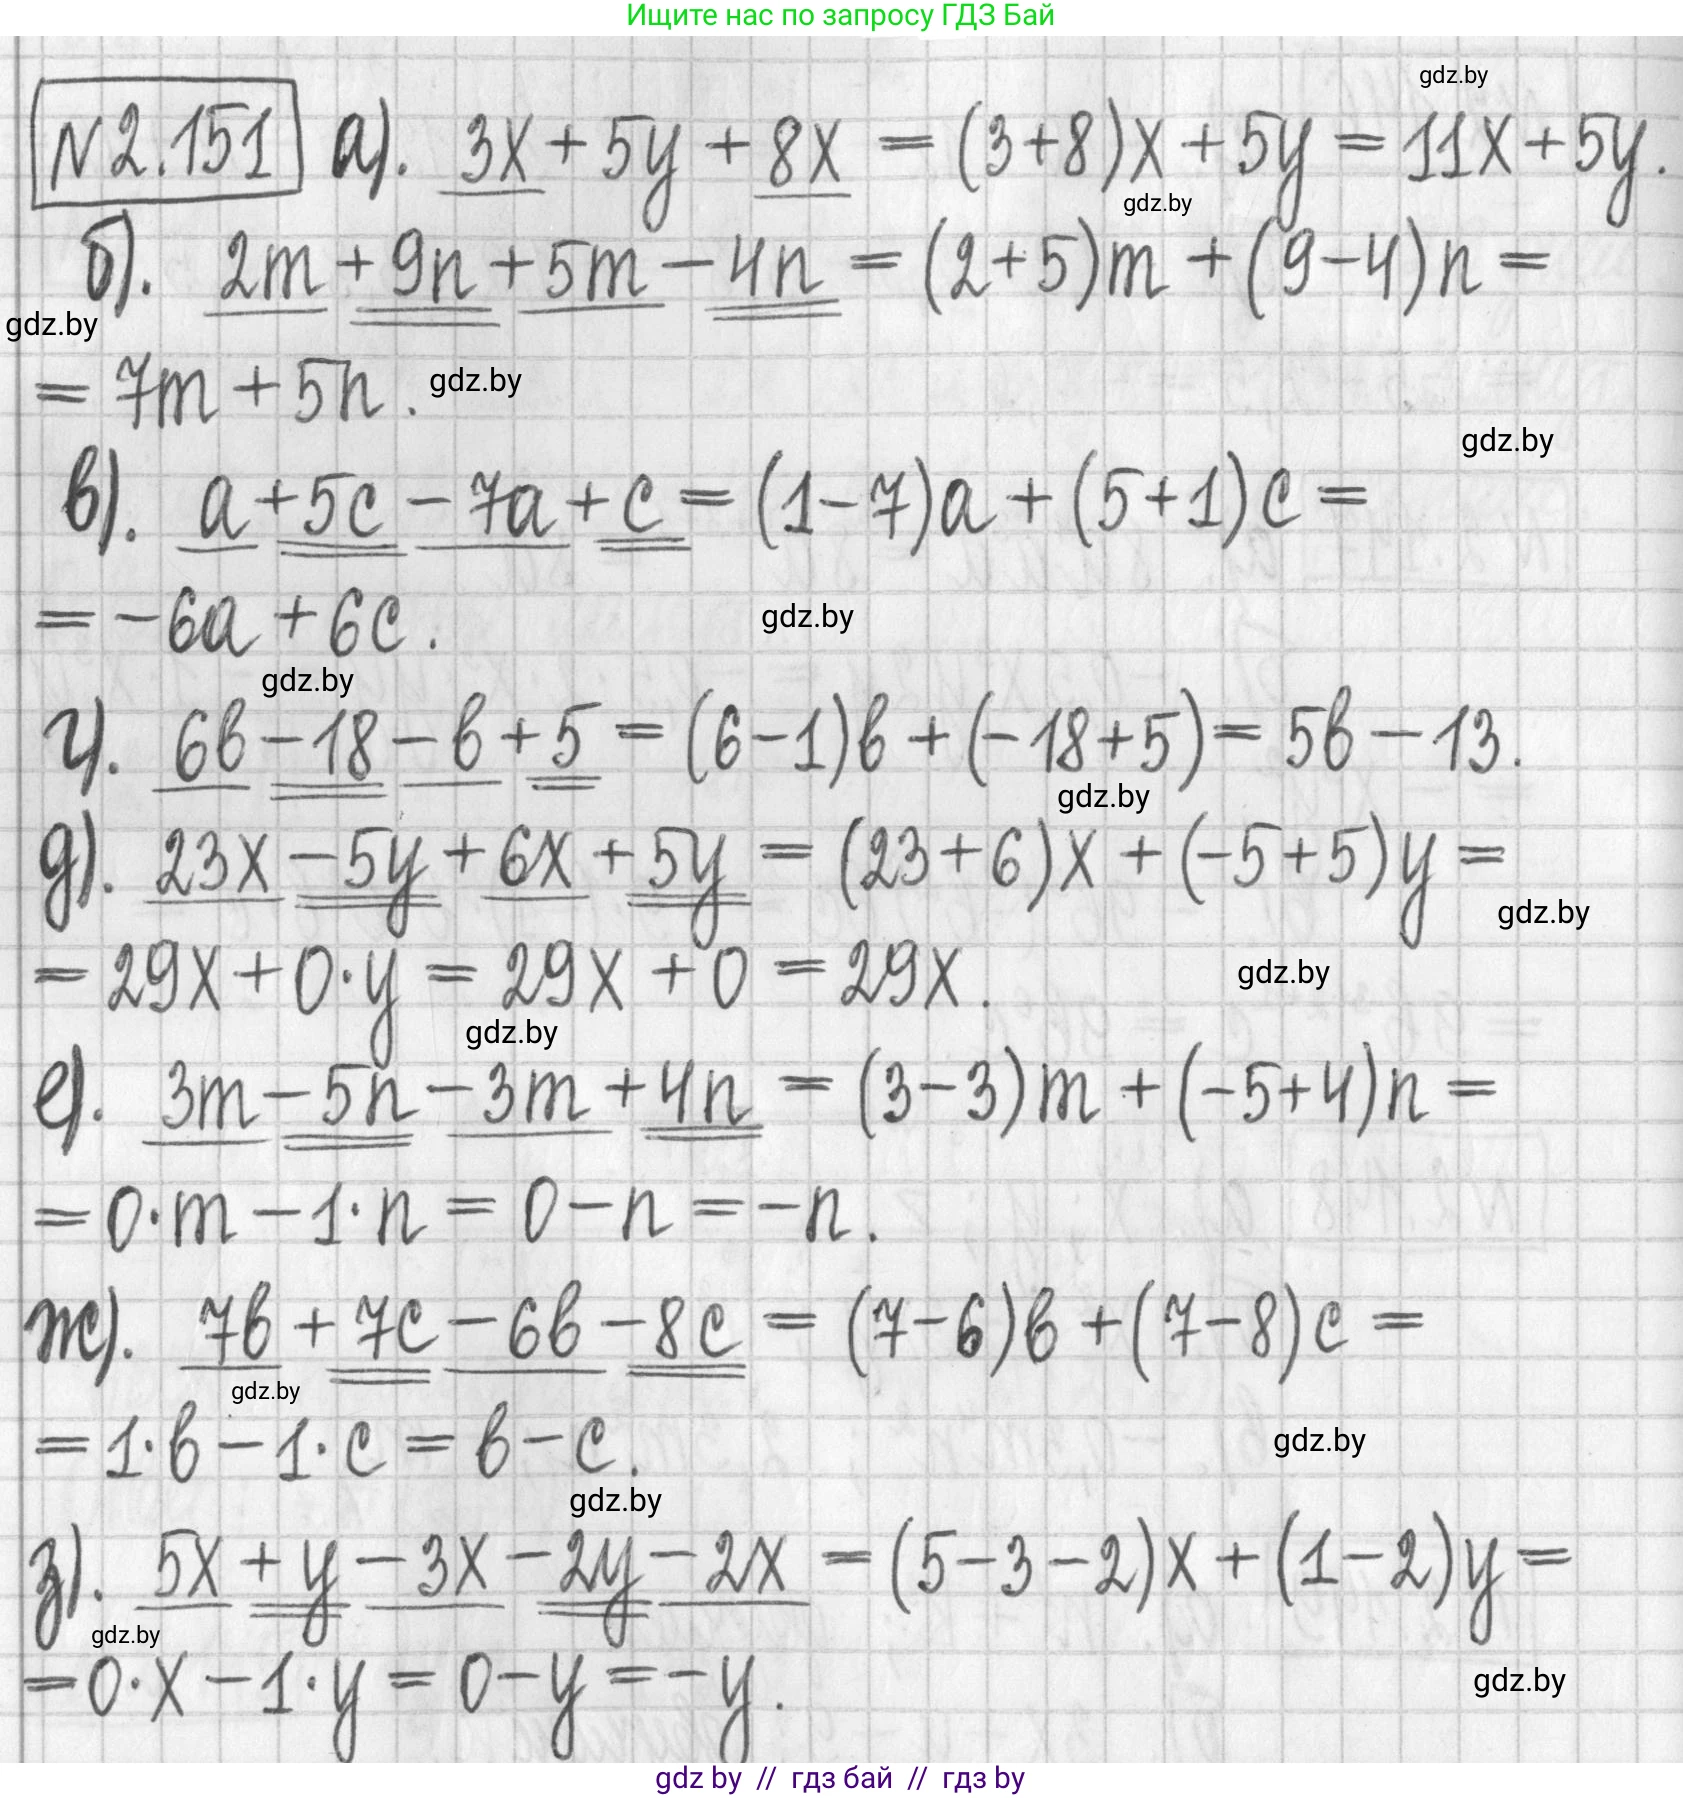 Ищите нас по запросу ГДЗ Бай
gdz.by
№2.151 а). 3x + 5y + 8x = (3+8)x + 5y = 11x + 5y.
gdz.by
б). 2m + 9n + 5m - 4n = (2+5)m + (9-4)n =
gdz.by
= 7m + 5n. gdz.by
gdz.by
в). a + 5c - 7a + c = (1-7)a + (5+1)c =
= -6a + 6c. gdz.by
gdz.by
г). 6b - 18 - b + 5 = (6-1)b + (-18+5) = 5b - 13.
gdz.by
д). 23x - 5y + 6x + 5y = (23+6)x + (-5+5)y =
gdz.by
= 29x + 0·y = 29x + 0 = 29x. gdz.by
gdz.by
е). 3m - 5n - 3m + 4n = (3-3)m + (-5+4)n =
= 0·m - 1·n = 0 - n = -n.
ж). 7b + 7c - 6b - 8c = (7-6)b + (7-8)c =
gdz.by
= 1·b - 1·c = b - c. gdz.by
gdz.by
з). 5x + y - 3x - 2y - 2x = (5-3-2)x + (1-2)y =
gdz.by
= 0·x - 1·y = 0 - y = -y. gdz.by
gdz by // гдз бай // гдз by